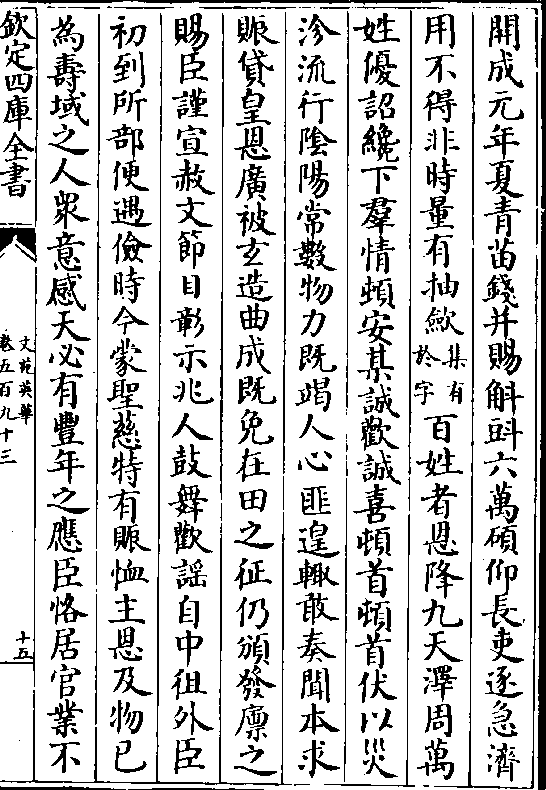 開成元年夏青苗錢并賜斛㪷六萬碩仰長吏逐急濟
用不得非時量有抽歛集有於字百姓者恩降九天澤周萬
姓優詔纔下羣情頓安某誠歡誠喜頓首頓首伏以災
沴流行隂陽常數物力既竭人心匪遑輙敢奏聞本求
賑貸皇恩廣被玄造曲成既免在田之征仍頒發廪之
賜臣謹宣赦文節目彰示兆人鼓舞歡謡自中徂外臣
初到所部便遇儉時今蒙聖慈特有賑恤主恩及物已
為壽域之人衆意感天必有豐年之應臣恪居官業不
欽定四庫全書
文苑英華
卷五百九十三
十五